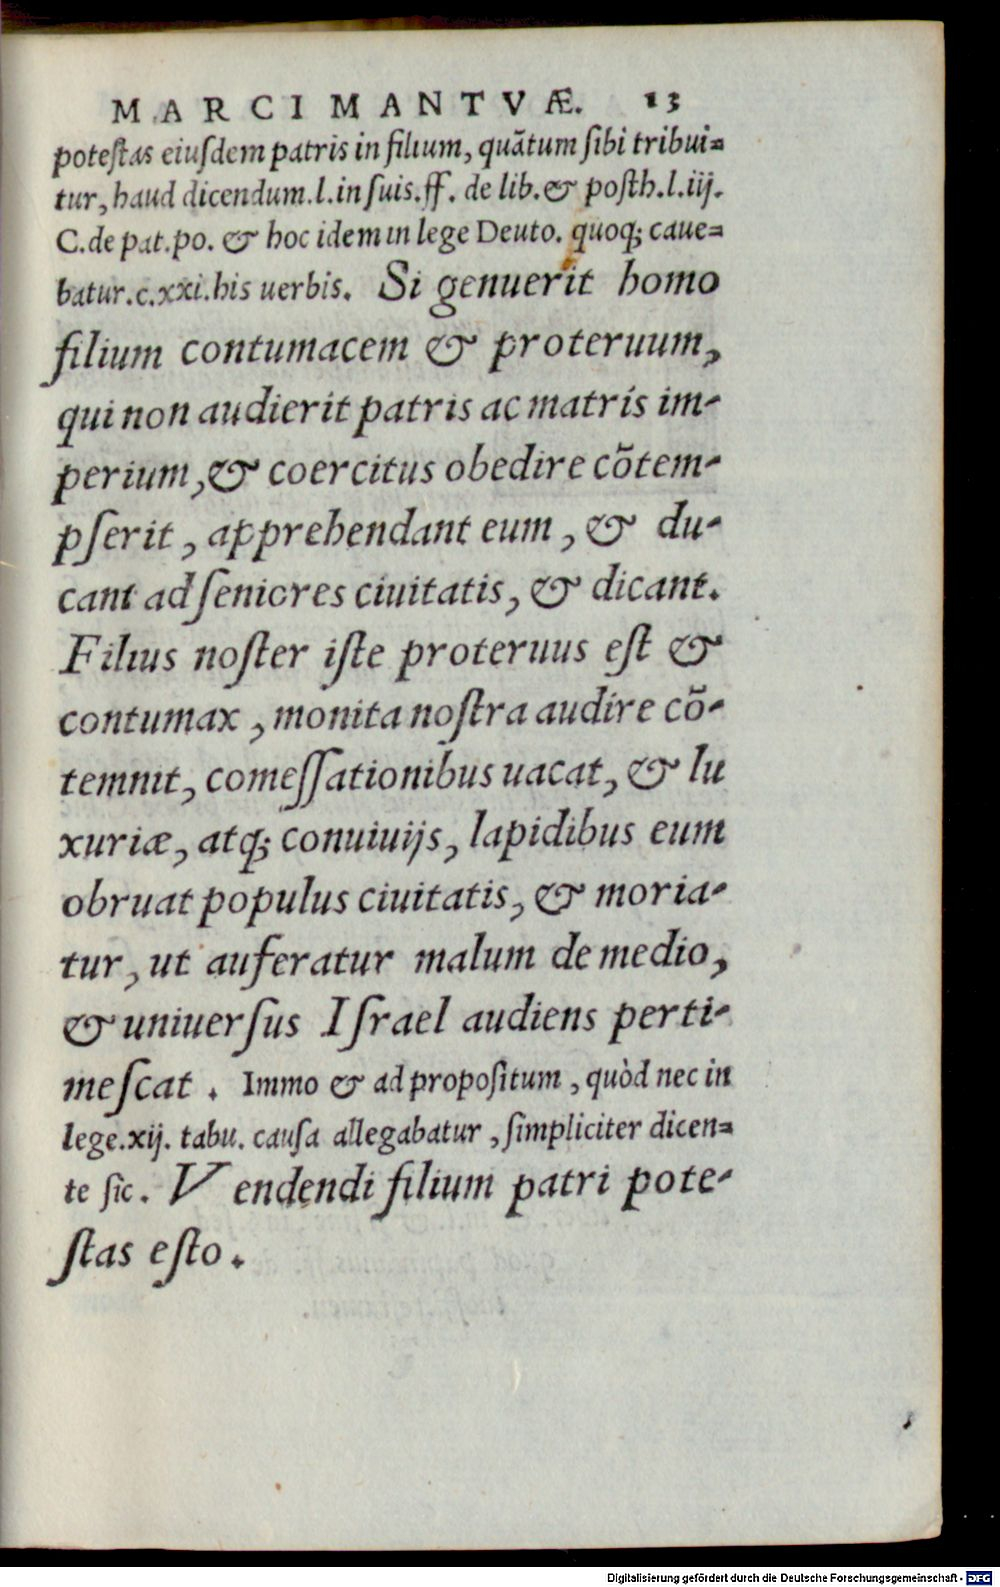 MARCI MANTVÆ. 13
poteſtas eiuſdem patris in filium, quãtum ſibi tribui=
tur, haud dicendum.l.in ſuis.ff. de lib.& poſth.l.iij.
C.de pat.po. & hoc idem in lege Deuto. quoq; caue=
batur.c.xxi.his uerbis. Si genuerit homo
filium contumacem & proteruum,
qui non audierit patris ac matris im-
perium,& coercitus obedire cõtem-
pſerit, apprehendant eum, & du-
cant ad ſeniores ciuitatis, & dicant.
Filius noſter iſte proteruus eſt &
contumax, monita noſtra audire cõ-
temnit, comeſſationibus uacat, & lu
xuriæ, atq; conuiuijs, lapidibus eum
obruat populus ciuitatis, & moria-
tur, ut auferatur malum de medio,
& uniuerſus Iſrael audiens perti-
meſcat. Immo & ad propoſitum, quòd nec in
lege.xij. tabu. cauſa allegabatur, ſimpliciter dicen=
te ſic. Vendendi filium patri pote-
ſtas eſto.
Digitalisierung gefördert durch die Deutsche Forschungsgemeinschaft - DFG